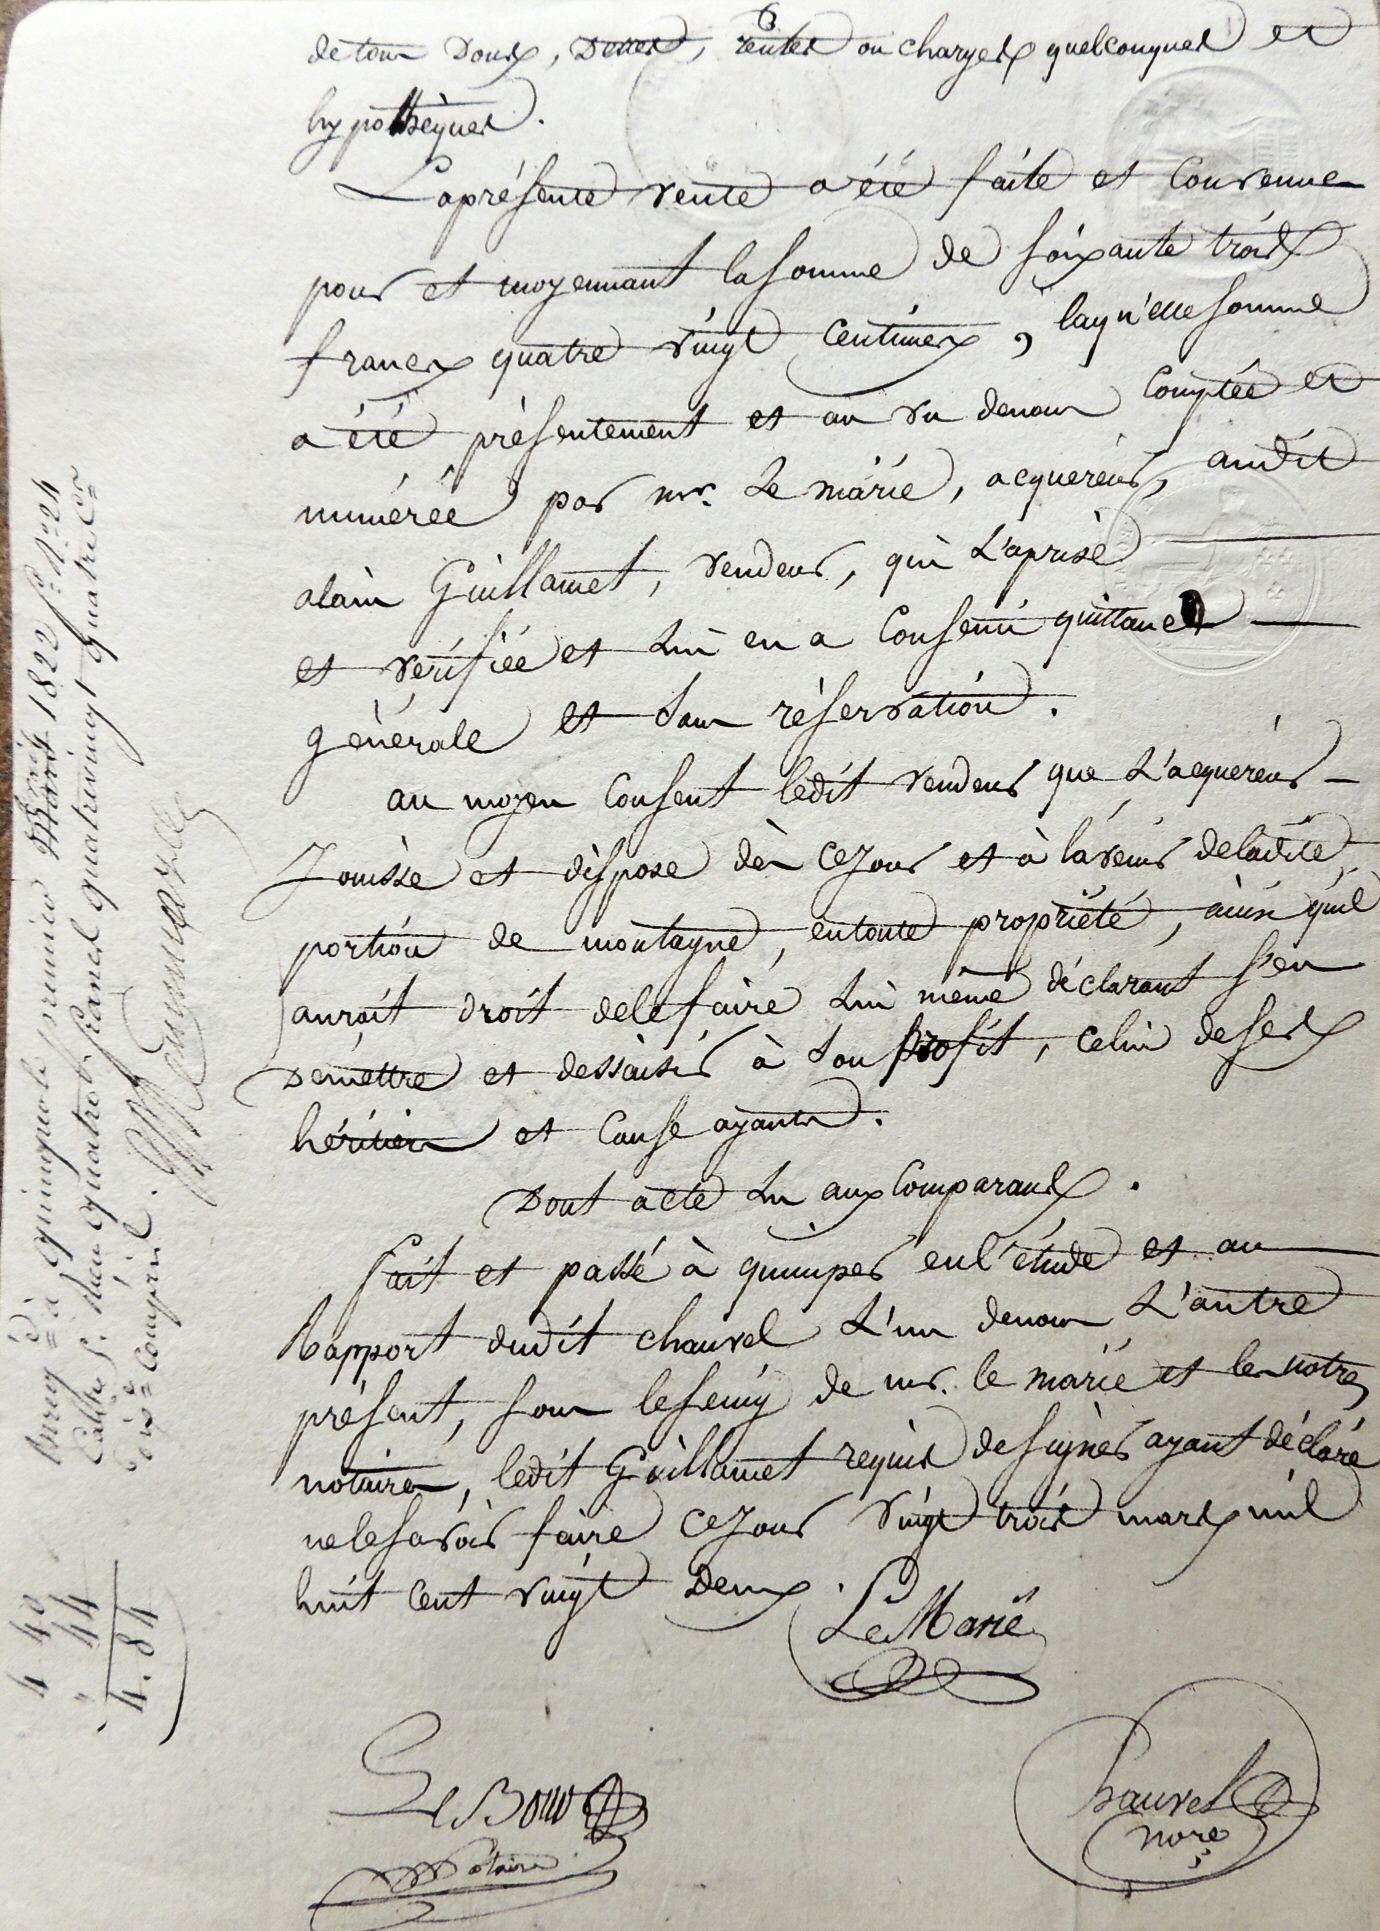 de tous Doux, Dettes, rentes ou charges quelconques et
hypothèques.
La présente vente a été faite et Convenue
pour et moyennant la somme de soixante trois
francs quatre vingt Centimes, laquelle somme
a été présentement et au vu denous Comptée et
numérée par mr. Le marié, acquéreur, audit
alain Guillamet, vendeur, qui L'aprise
et vérifiée et Lui en a Consenti quittance
générale et sans réservation.
au moyen Consent ledit vendeur que L'acquéreur
Jouisse et dispose dès ceJour et à l'avenir deladite
portion de montagne, entoute propriété, ainsi qu'il
auroit droit delefaire Lui même déclarant s'en
Démettre et dessaisir à son profit, celui deses
héritiers et Cause ayants.
Dont acte Lu aux Comparants.
fait et passé à quimper enl'étude et au
Rapport dudit chauvel L'un denous L'autre
présent, sous leseing de mr. le marié et les notres
notaires, ledit Guillamet requis designer ayant déclaré
nelesavoir faire ceJour vingt trois mars mil
huit cent vingt Deux.
Le Marié
Le Bour
Notaire
Chauvel
nore
Enreg.é à quimper le premier avril 1822 f.o
quatre francs quatrevingt quatre c.es
dix.e Compris.
4 40
" 44
4.84